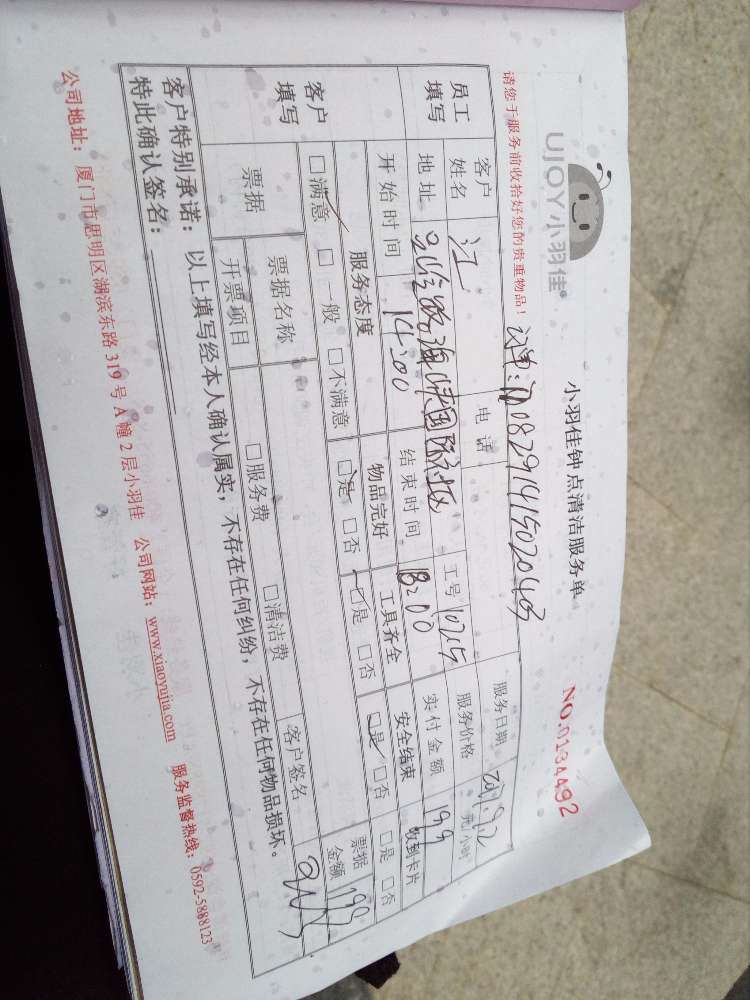 UJOY小羽佳
小羽佳钟点清洁服务单
NO.0134492
请您于服务前收拾好您的贵重物品!
08291415020403
员工填写
客户姓名 江 电话 工号 1015 服务日期
地址 国际 服务价格 元/小时
开始时间 14:00 结束时间 18:00 实付金额 199
客户填写
服务态度 物品完好 工具齐全 安全结束 收到卡片
□满意 □一般 □不满意 □是 □否 □是 □否 □是 □否 □是 □否
票据 票据名称 □服务费 □清洁费 票据金额 199
开票项目 客户签名
客户特别承诺:以上填写经本人确认属实,不存在任何纠纷,不存在任何物品损坏。
特此确认签名:
公司地址:厦门市思明区湖滨东路319号A幢2层小羽佳 公司网站:www.xiaoyujia.com 服务监督热线:0592-5888123